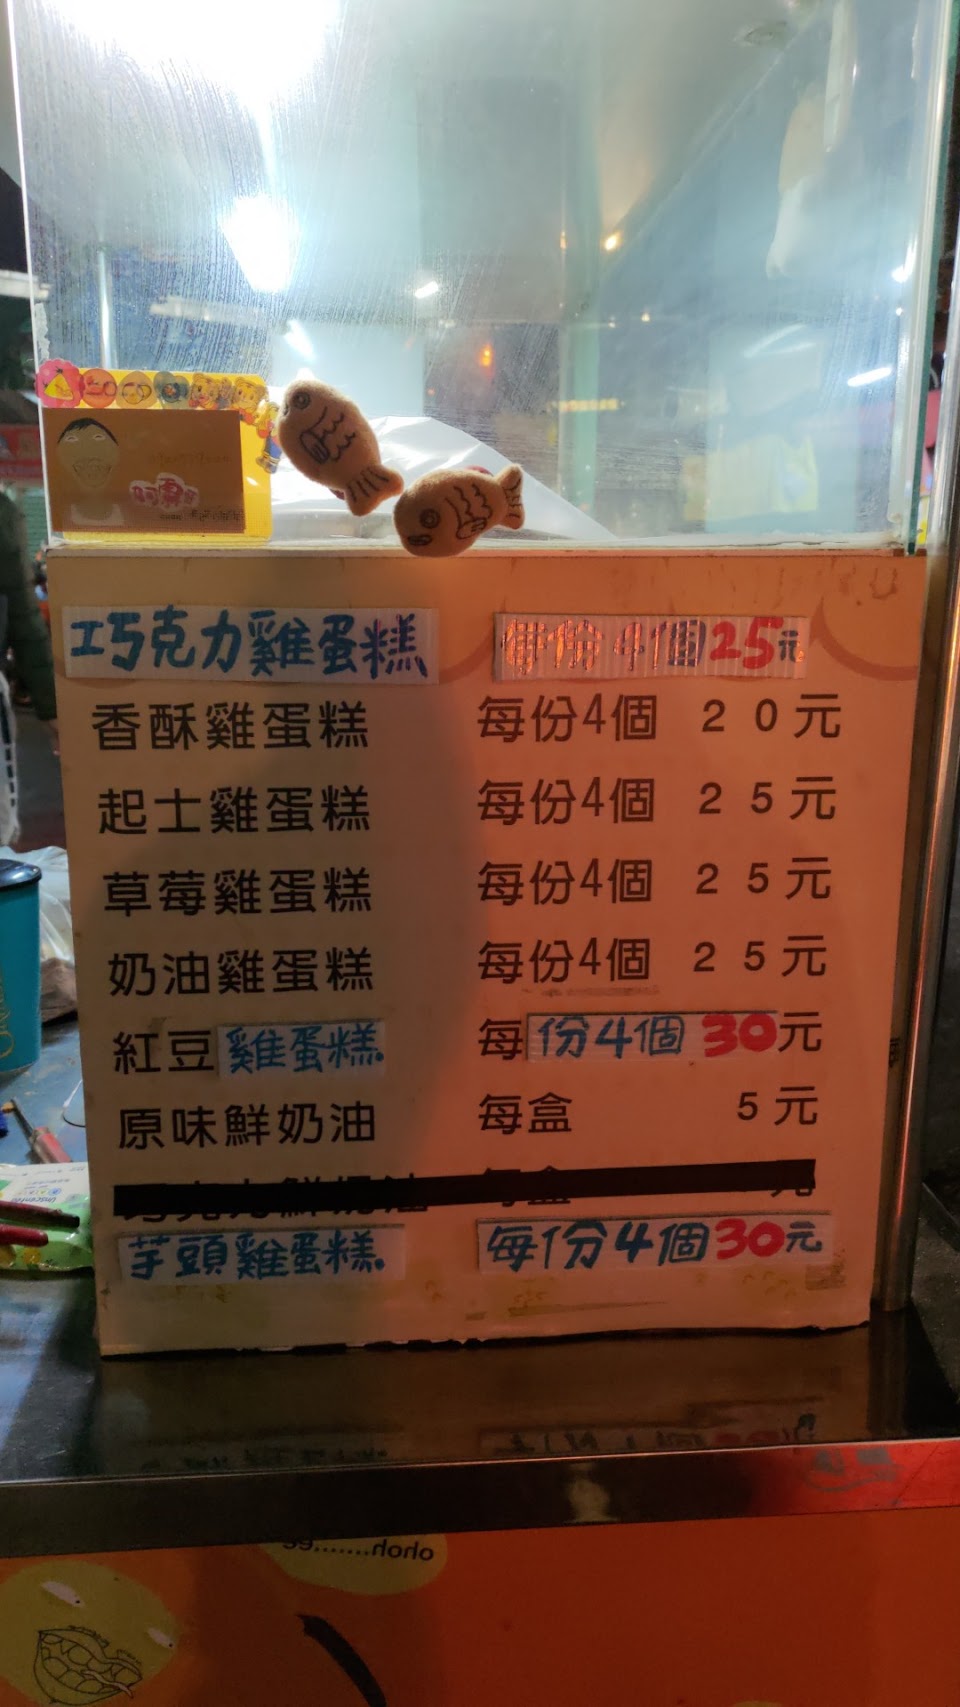 阿
巧克力雞蛋糕 每份4個25元
香酥雞蛋糕 每份4個 20元
起士雞蛋糕 每份4個 25元
草莓雞蛋糕 每份4個 25元
奶油雞蛋糕 每份4個 25元
紅豆雞蛋糕 每份4個30元
原味鮮奶油 每盒 5元
芋頭雞蛋糕 每份4個30元
gg.......hoho